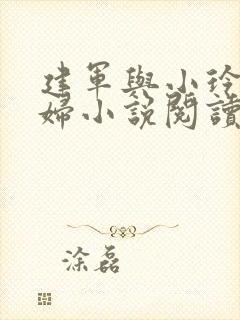 建軍與小玲
婦小說閱讀
涂磊